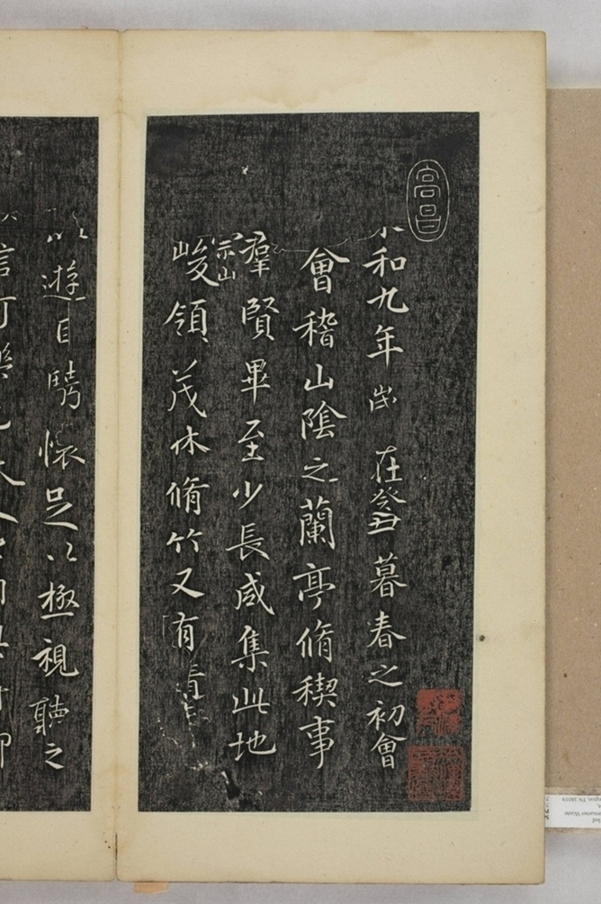 高昌
和九年 在癸丑暮春之初會
會稽山陰之蘭亭脩稧事
羣賢畢至少長咸集此地
崇山
峻領茂林脩竹又有清
遊目騁懷足以極視聽之
信可樂也夫人